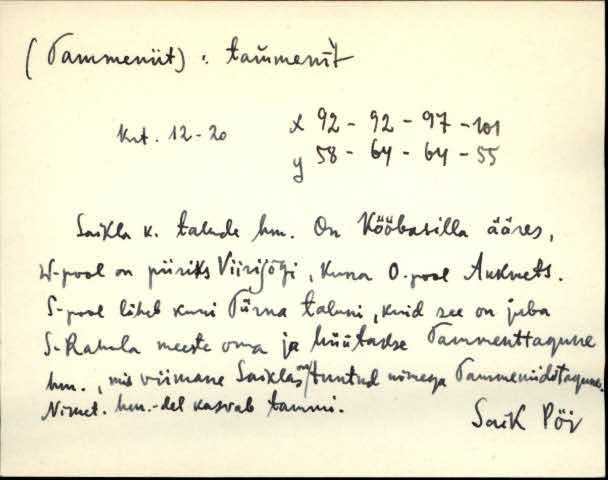 (Tammeniit) : tam̆menìt
Krt. 12-20 x 92 - 92 - 97 - 101
y 58 - 64 - 64 - 55
Saikla k. talude hm. On Kööbasilla ääres,
W-pool on piiriks Viirijõgi, kuna O-pool Auknets.
S-pool läheb kuni Türna taluni, kuid see on juba
S-Rahula meeste oma ja hüütakse Tammenttagune
hm., mis viimane Saiklas on tuntud nimega Tammeniidstagune.
Nimet. hm.-del kasvab tammi.
Saik Pöi